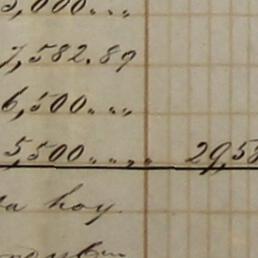 ,000.,,
7,582.89
6,500.,,
5,500.,,,, 29,58
ta hoy.